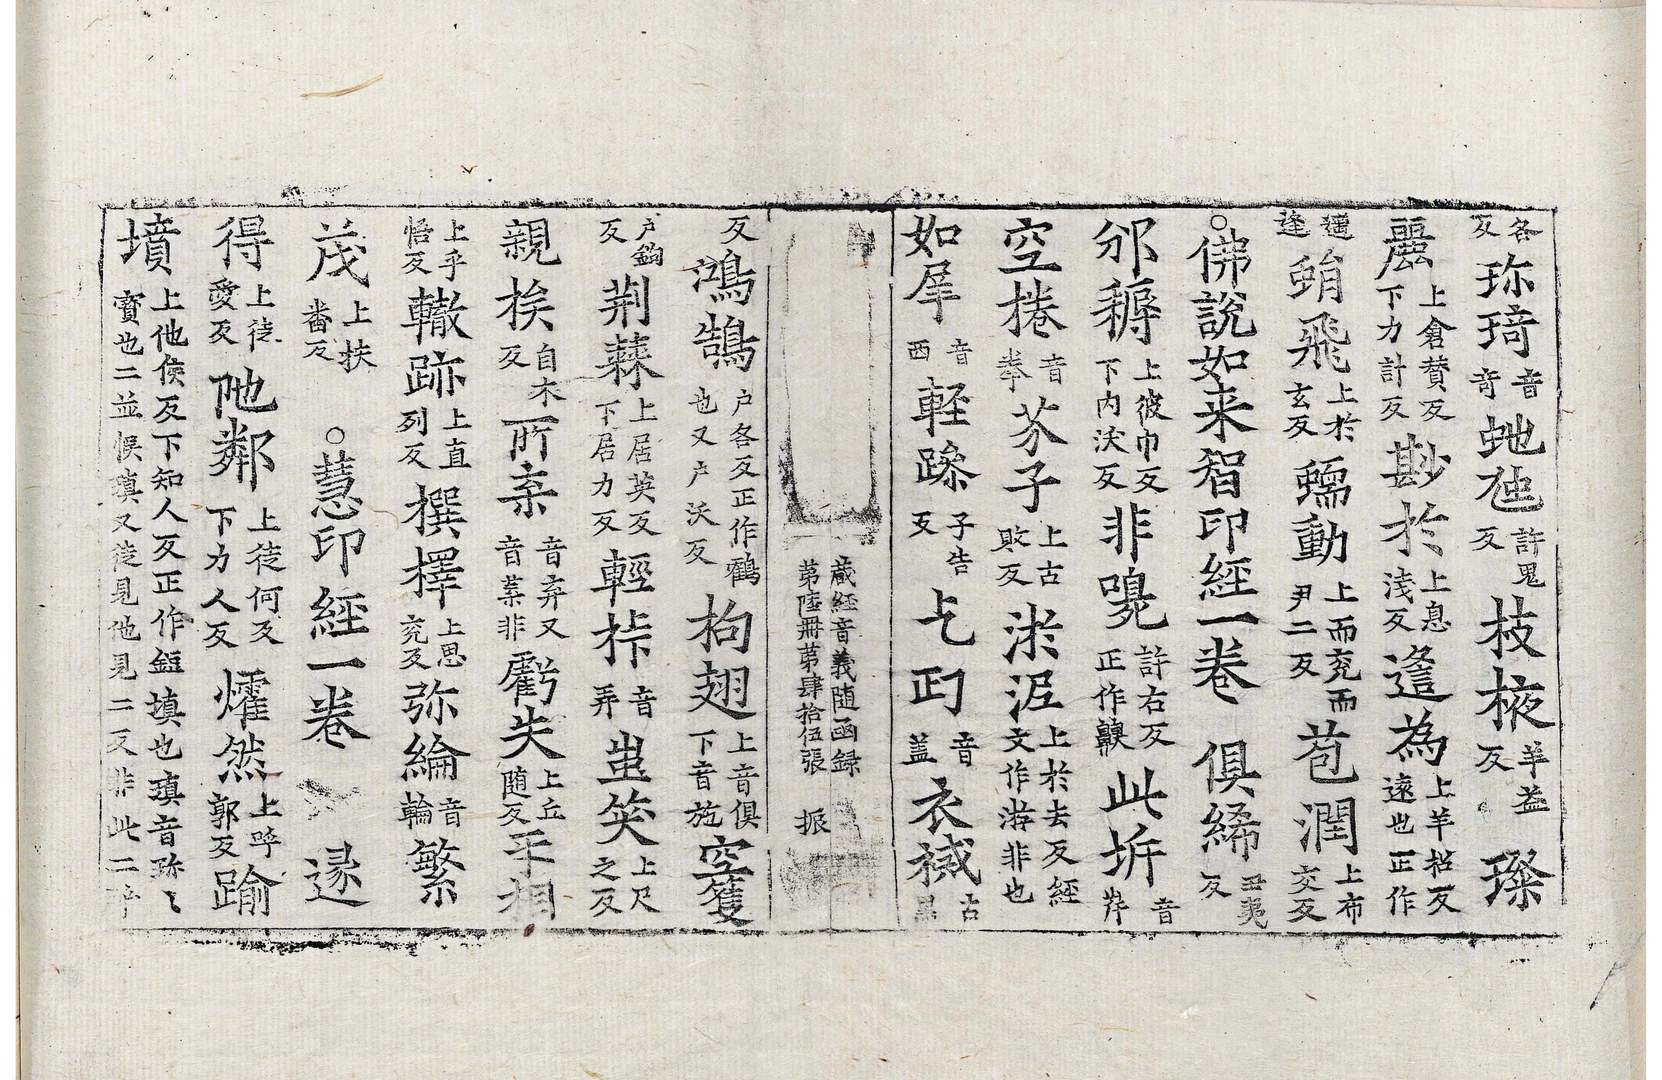 各反珎琦音奇虵虺許鬼反枝掖羊益反璨
麗上倉賛反下力計反尠於上息浅反逺為上羊招反遠也正作
遥逢蜎飛上於玄反蠕動上而兖而尹二反苞潤上布交反
○佛說如来智印經一卷　俱絺丑夷反
邠耨上彼巾反下内沃反非嗅許右反正作齅此坼音
空捲音拳芥子上古敗反淤泥上於去反經文作游非也
如犀音西軽躁子告反上丐音盖衣裓古黒
藏經音義随函録第陸冊第肆拾伍張　振
反鴻鵠户各反正作鸖也又户沃反拘翅上音俱下音施空䨥
户鈎反荆蕀上居英反下居力反輕㭇音弄蚩笑上尺之反
親族自木反所棄音弃又音葉非虧失上丘随反平相
上乎悟反轍跡上直列反撰擇上思兖反弥綸音輪繁
茂上扶番反　○慧印經一卷　逮
得上徒愛反阤鄰上徒何反下力人反燿然上呼郭反踰
墳上他候反下知人反正作鋀填也瑱音珎〻寳也二並悮瑱又徒見他見二反非此二呼